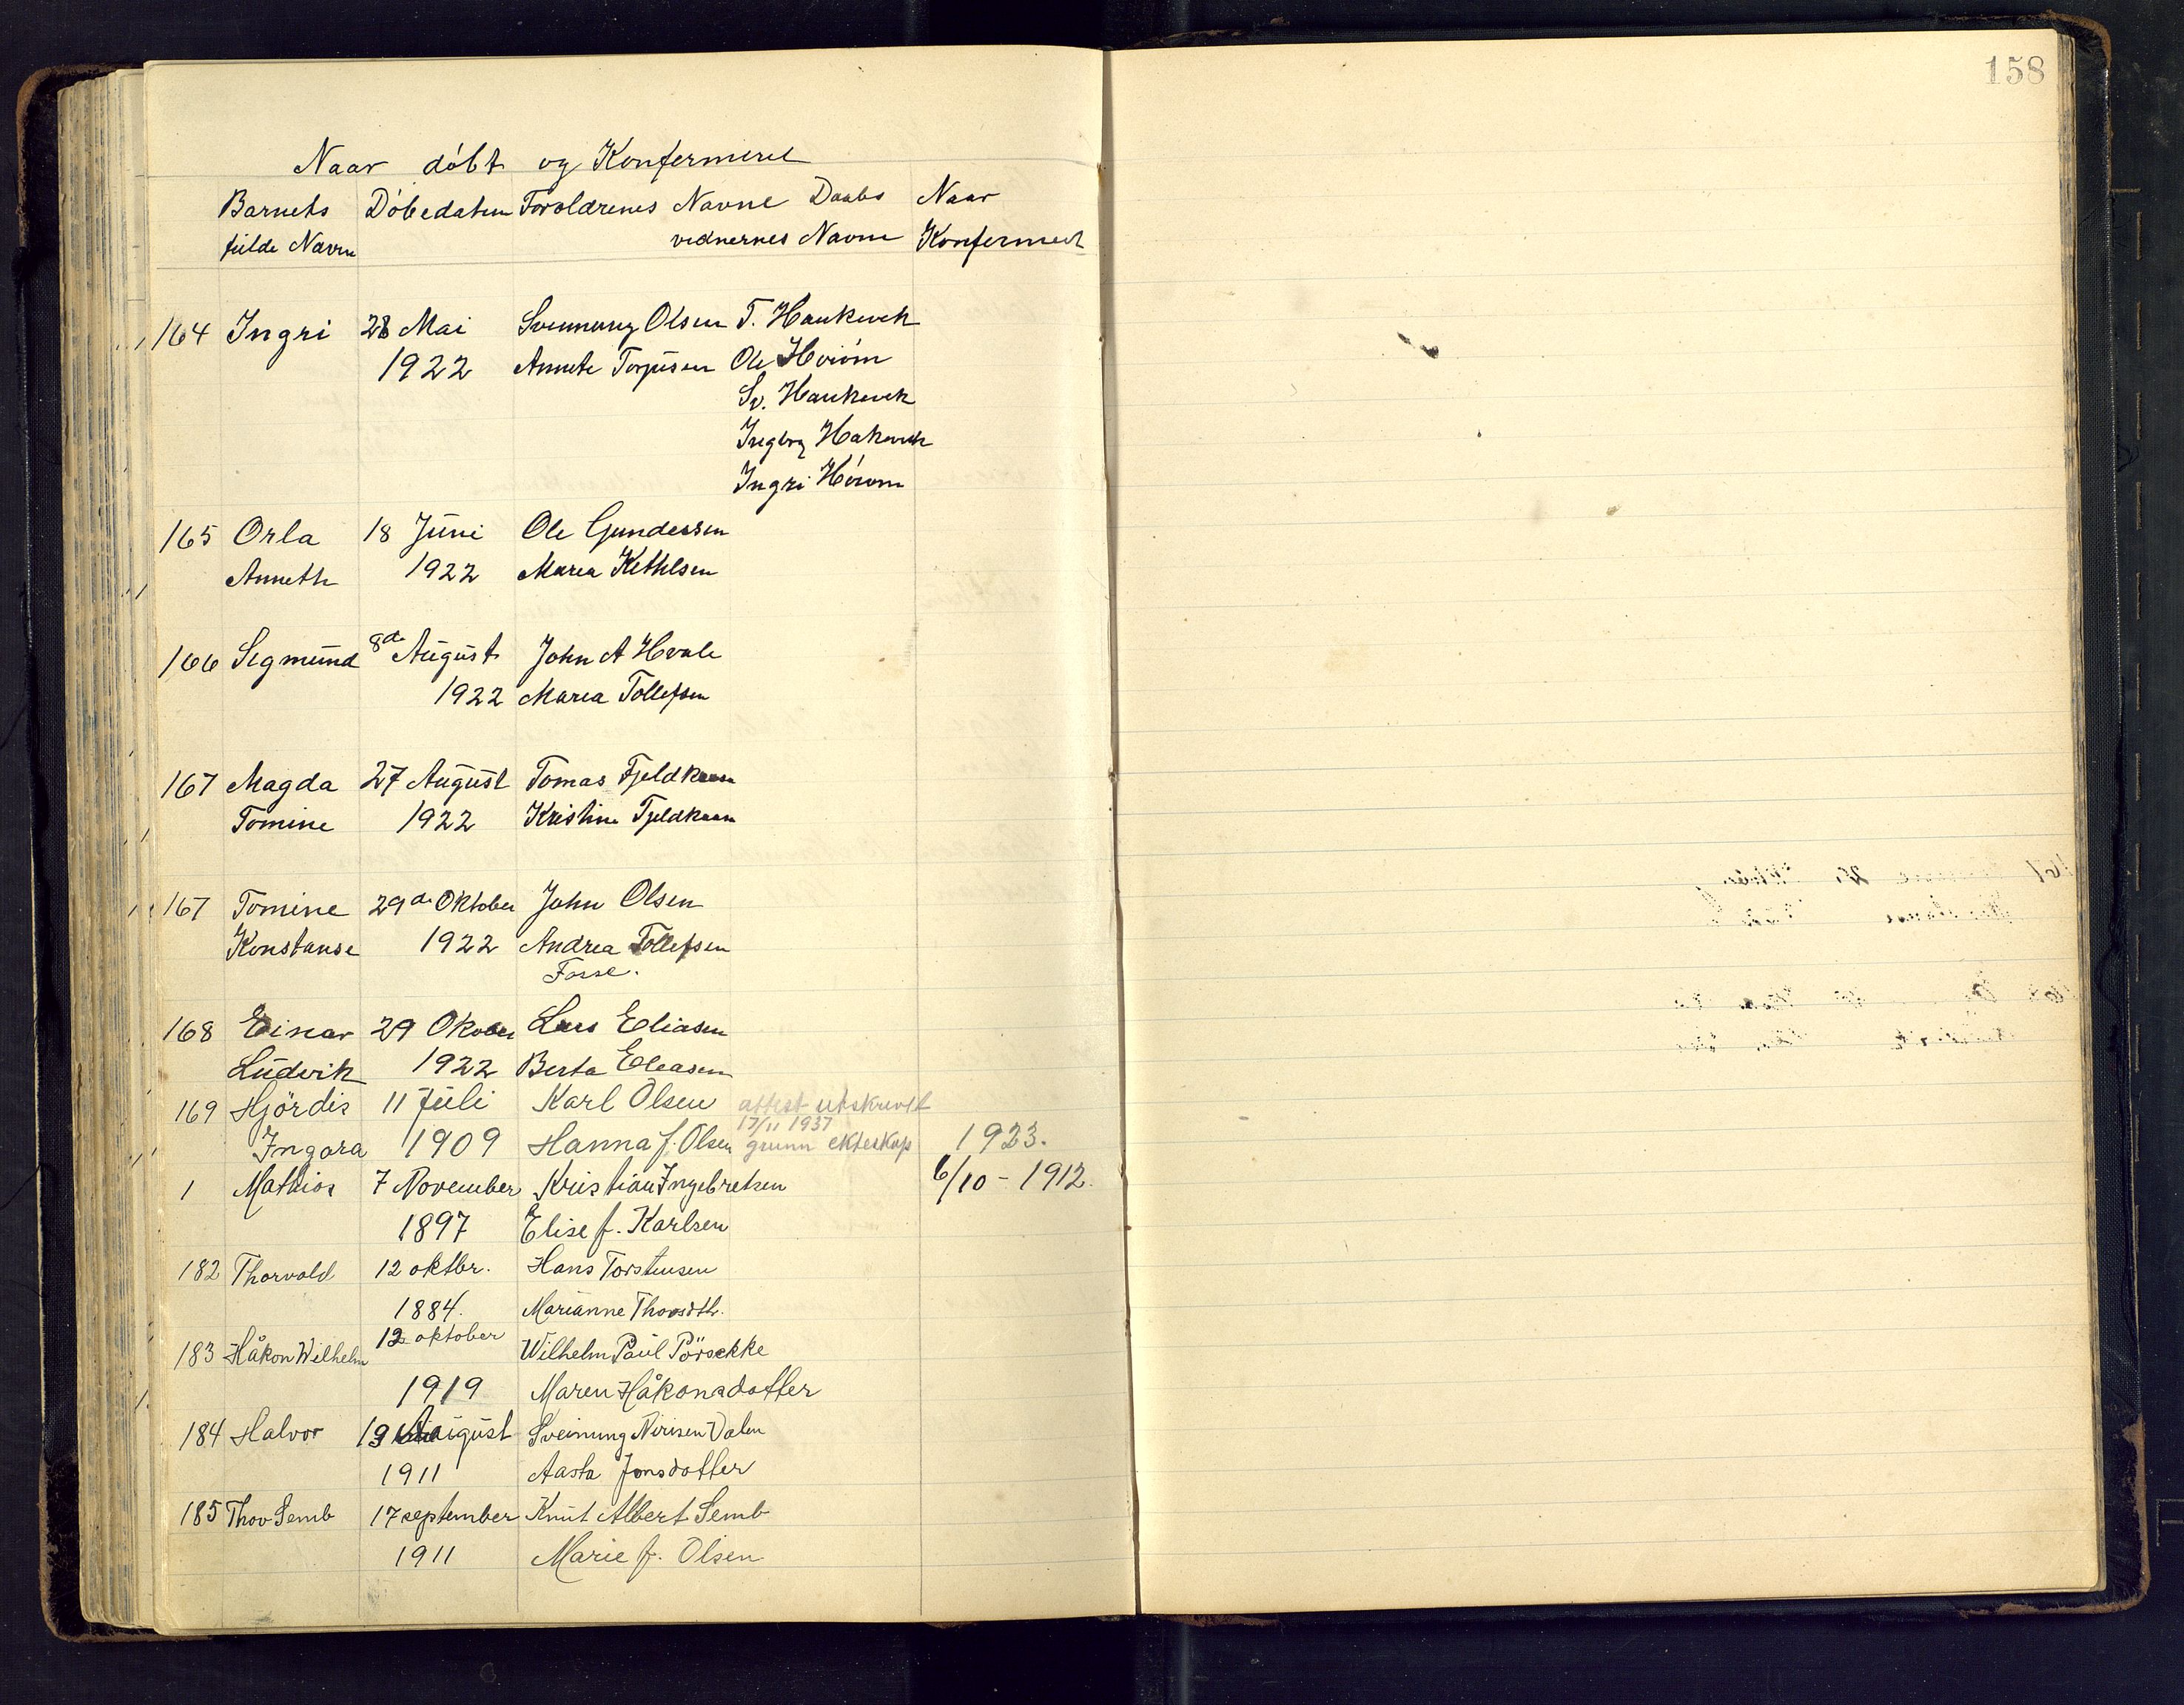 158
Naar döbt og Konfermeret
Barnets Döbedatum Foroldrenes Navne Daabs Naar
fulde Navn vednernes Navne Konfermert
164 Ingri 28 Mai Svennung Olsen T. Haukevek
1922 Annete Torjusen Ole Hviöm
Sv. Haukevek
Ingbrg Hakevek
Ingri Höiom
165 Orla 18 Juni Ole Gundersen
Anneth 1922 Marea Kethlsen
166 Segmund 8de August John A Hvale
1922 Marea Tollefsen
167 Magda 27 August Tomas Fjeldkaasa
Tomine 1922 Kristine Fjeldkaasa
167 Tomine 29de Oktober John Olsen
Konstanse 1922 Andrea Tollefsen
Fosse.
168 Einar 29 Okober Lars Eliasen
Ludvik 1922 Berta Eleasen
169 Hjördis 11 Juli Karl Olsen attest utskrevet
17/11 1937
Ingora 1909 Hanna f. Olsen grunn ekteskap 1923.
1 Mathias 7 November Kristian Ingebretsen 6/10 - 1912.
1897 Elise f. Karlsen
182 Thorvald 12 oktbr. Hans Torstensen
1884. Marianne Thorsdtr.
183 Håkon Wilhelm 12 oktober Wilhelm Paul Pörschke
1919 Maren Håkonsdotter
184 Halvor 19 August Sveinung Nirisen Dalen
1911 Aasta Jonsdotter
185 Thov Semb 17 september Knut Albert Semb
1911 Marie f. Olsen